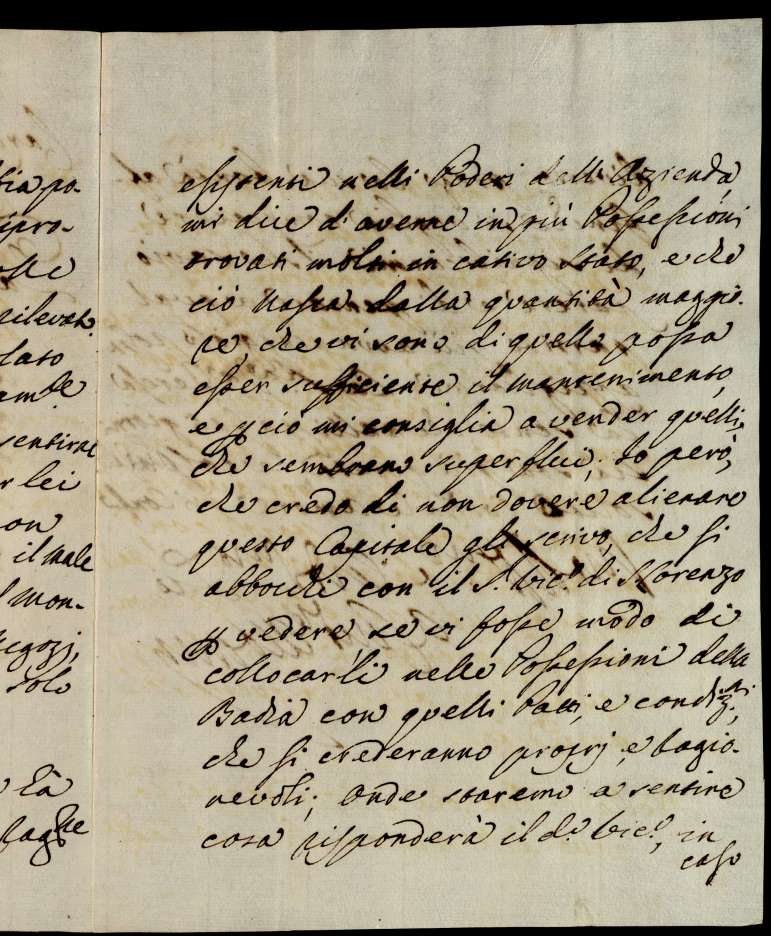 bia po-
ipro-
oste
rilevato
lato
am.te
sentirne
r lei
on
il male
l mon-
Negozj,
solo
là
esistenti nelli Poderi dell'Azienda,
mi dice d'averne in più Possessioni
trovati molti in cativo stato, e che
ciò nasca dalla quantità maggio-
re, che vi sono di quello possa
esser sufficiente il mantenimento,
e p ciò mi consiglia a vender quelli,
che sembrano superflui; Io però,
che credo di non dovere alienare
questo Capitale gli scrivo, che si
abbochi con il S.r Vic.o di S Lorenzo
p vedere, se vi fosse modo di
collocarli nelle Possessioni della
Badia con quelli Patti, e condiz.ni,
che si crederanno proprj, e ragio-
nevoli; Onde staremo a sentire
cosa risponderà il d.o Vic.o, in
caso